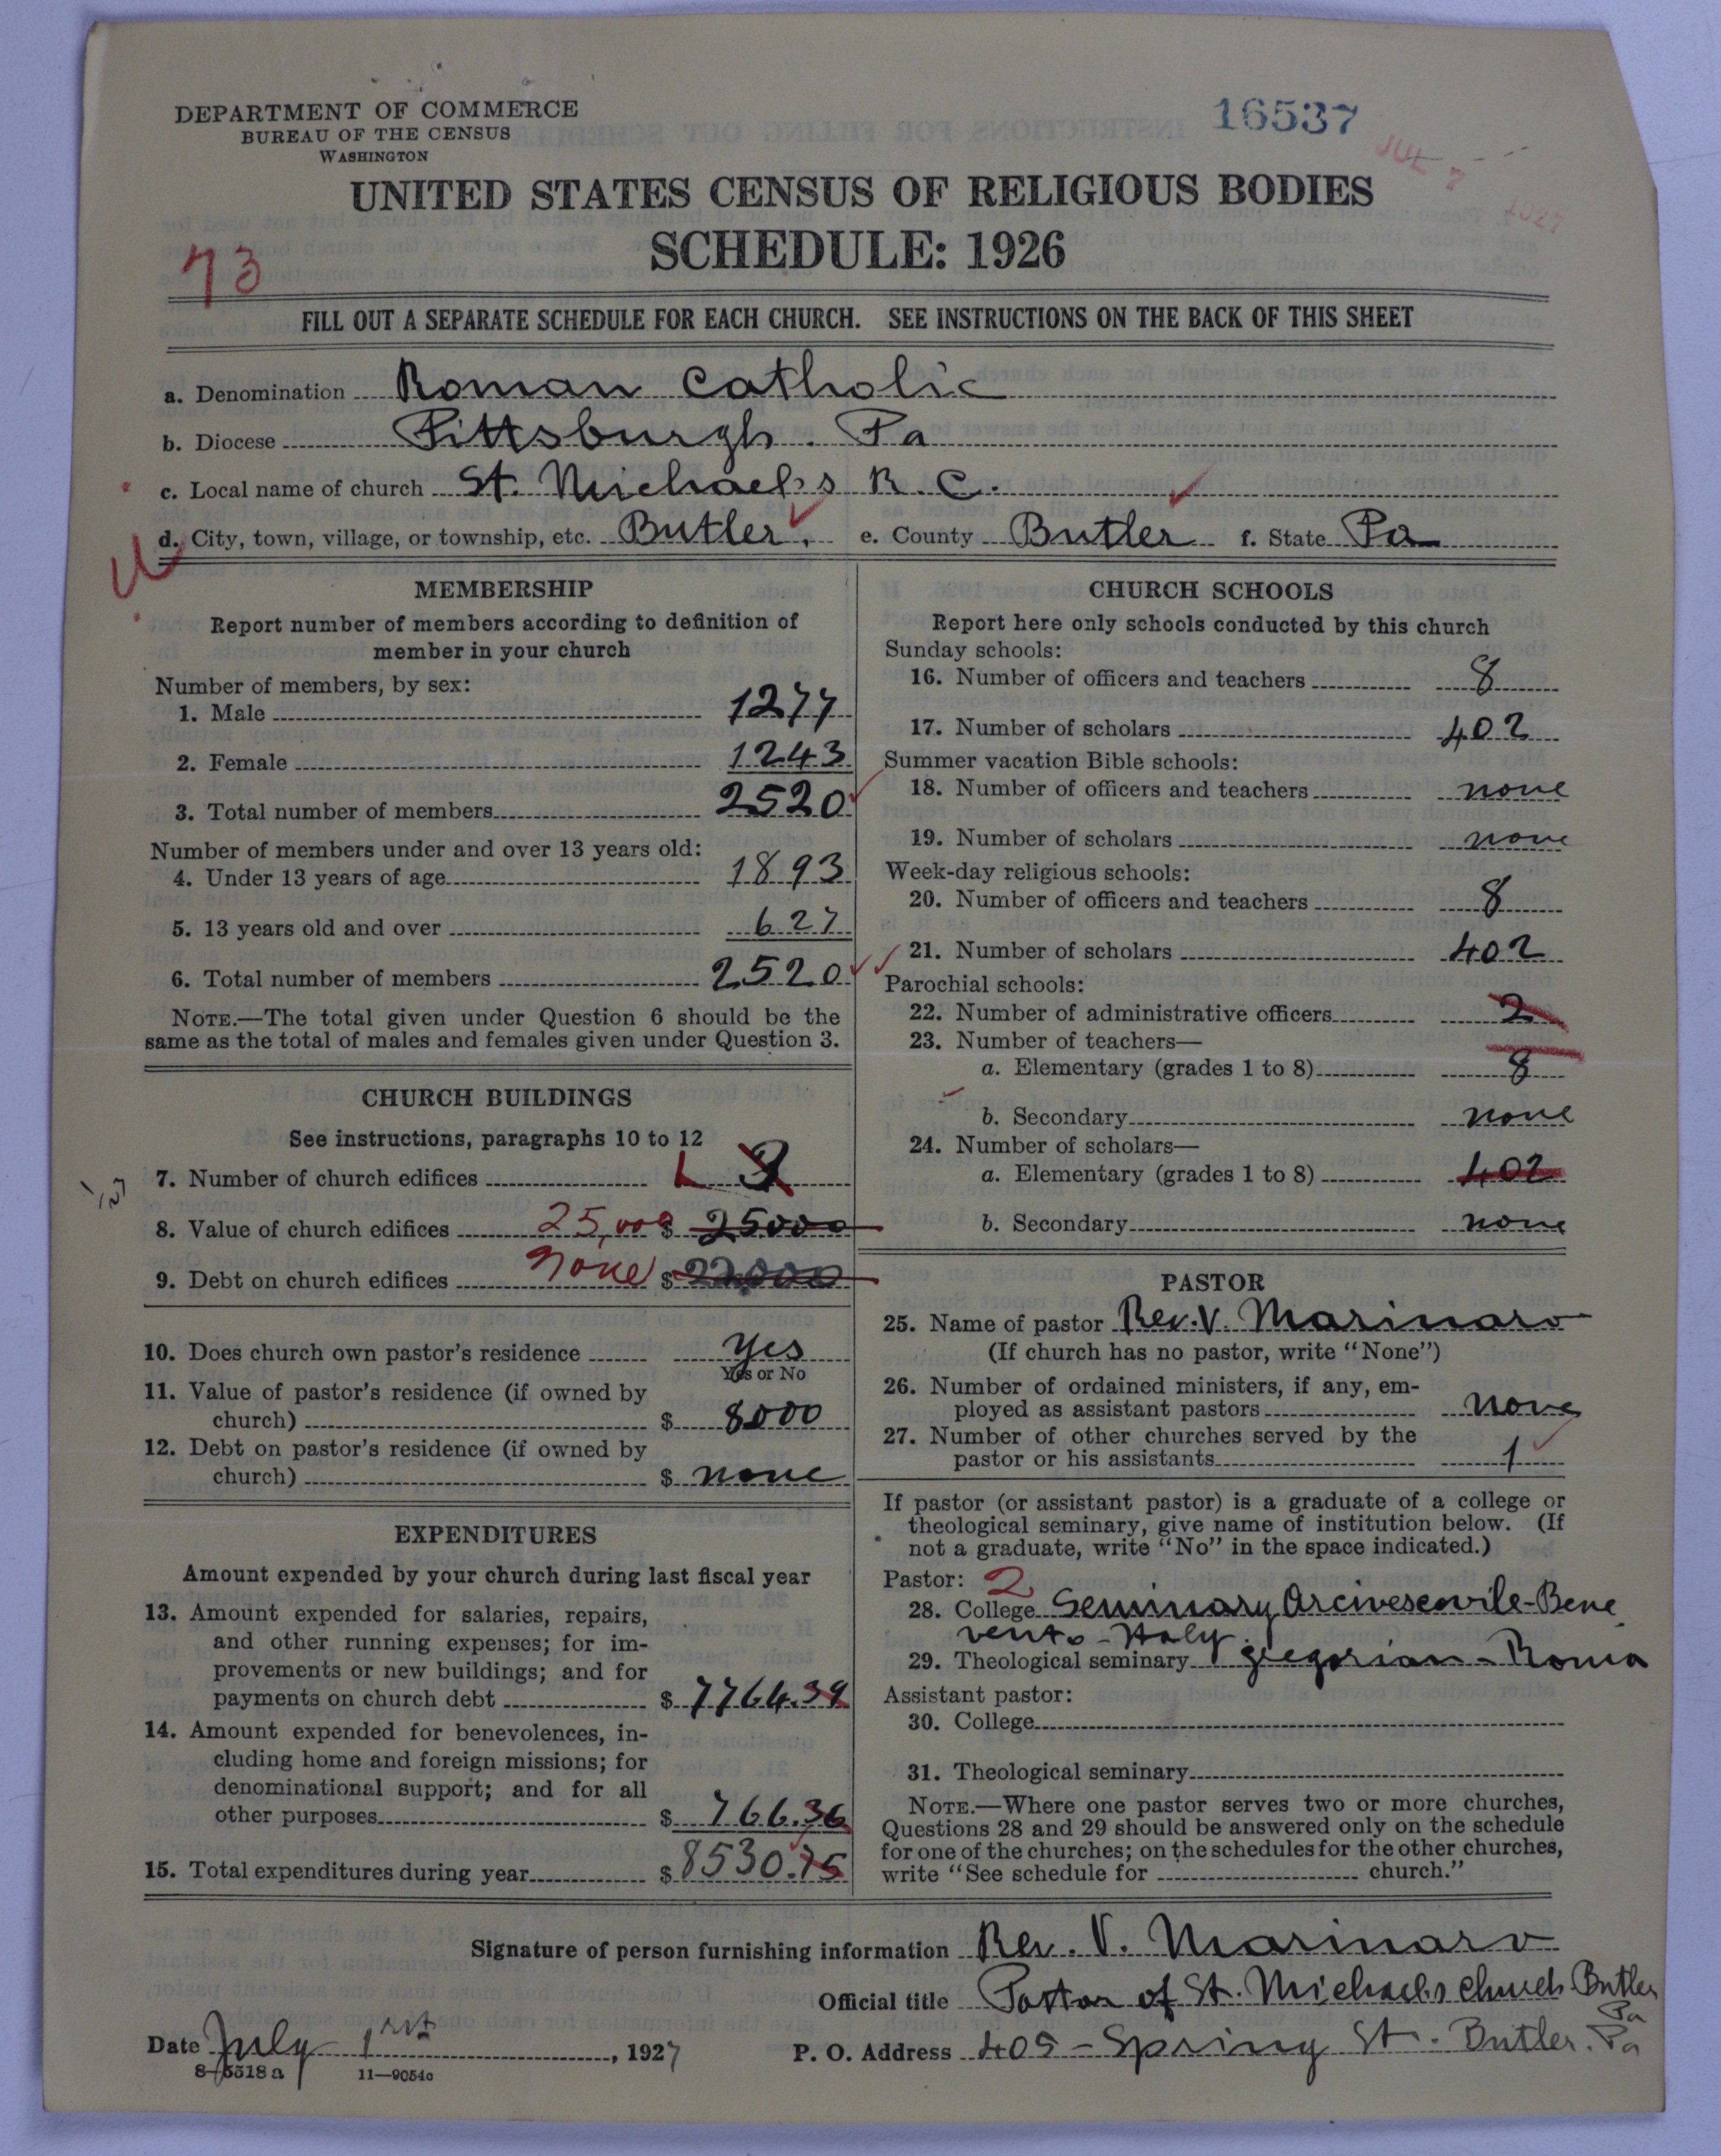 DEPARTMENT OF COMMERCE
BUREAU OF THE CENSUS
WASHINGTON
16537
JUL 7 1927
UNITED STATES CENSUS OF RELIGIOUS BODIES
SCHEDULE: 1926
73
FILL OUT A SEPARATE SCHEDULE FOR EACH CHURCH. SEE INSTRUCTIONS ON THE BACK OF THIS SHEET
a. Denomination Roman Catholic
b. Diocese Pittsburgh. Pa
c. Local name of church St. Michael's R. C.
d. City, town, village, or township, etc. Butler. e. County Butler f. State Pa
MEMBERSHIP
Report number of members according to definition of
member in your church
Number of members, by sex:
1. Male 1277
2. Female 1243
3. Total number of members 2520
Number of members under and over 13 years old:
4. Under 13 years of age 1893
5. 13 years old and over 627
6. Total number of members 2520
NOTE.—The total given under Question 6 should be the
same as the total of males and females given under Question 3.
CHURCH BUILDINGS
See instructions, paragraphs 10 to 12
7. Number of church edifices 1 3
8. Value of church edifices 25,000 $ 25000
9. Debt on church edifices none $ 22,000
10. Does church own pastor's residence yes
Yes or No
11. Value of pastor's residence (if owned by
church) $ 8000
12. Debt on pastor's residence (if owned by
church) $ none
EXPENDITURES
Amount expended by your church during last fiscal year
13. Amount expended for salaries, repairs,
and other running expenses; for im-
provements or new buildings; and for
payments on church debt $ 7764.39
14. Amount expended for benevolences, in-
cluding home and foreign missions; for
denominational support; and for all
other purposes $ 766.36
15. Total expenditures during year $ 8530.75
CHURCH SCHOOLS
Report here only schools conducted by this church
Sunday schools:
16. Number of officers and teachers 8
17. Number of scholars 402
Summer vacation Bible schools:
18. Number of officers and teachers none
19. Number of scholars none
Week-day religious schools:
20. Number of officers and teachers 8
21. Number of scholars 402
Parochial schools:
22. Number of administrative officers 2
23. Number of teachers—
a. Elementary (grades 1 to 8) 8
b. Secondary none
24. Number of scholars—
a. Elementary (grades 1 to 8) 402
b. Secondary none
PASTOR
25. Name of pastor Rev. V. Marinaro
(If church has no pastor, write "None")
26. Number of ordained ministers, if any, em-
ployed as assistant pastors none
27. Number of other churches served by the
pastor or his assistants 1
If pastor (or assistant pastor) is a graduate of a college or
theological seminary, give name of institution below. (If
not a graduate, write "No" in the space indicated.)
Pastor: 2
28. College Seminary Arcivescovile-Bene
vento-Italy.
29. Theological seminary gregorian - Roma
Assistant pastor:
30. College
31. Theological seminary
NOTE.—Where one pastor serves two or more churches,
Questions 28 and 29 should be answered only on the schedule
for one of the churches; on the schedules for the other churches,
write "See schedule for church."
Signature of person furnishing information Rev. V. Marinaro
Official title Pastor of St. Michael's Church Butler
Pa
Date July 1rst, 1927 P. O. Address 405 - Spring St. Butler. Pa
8—5518 a 11—9054o